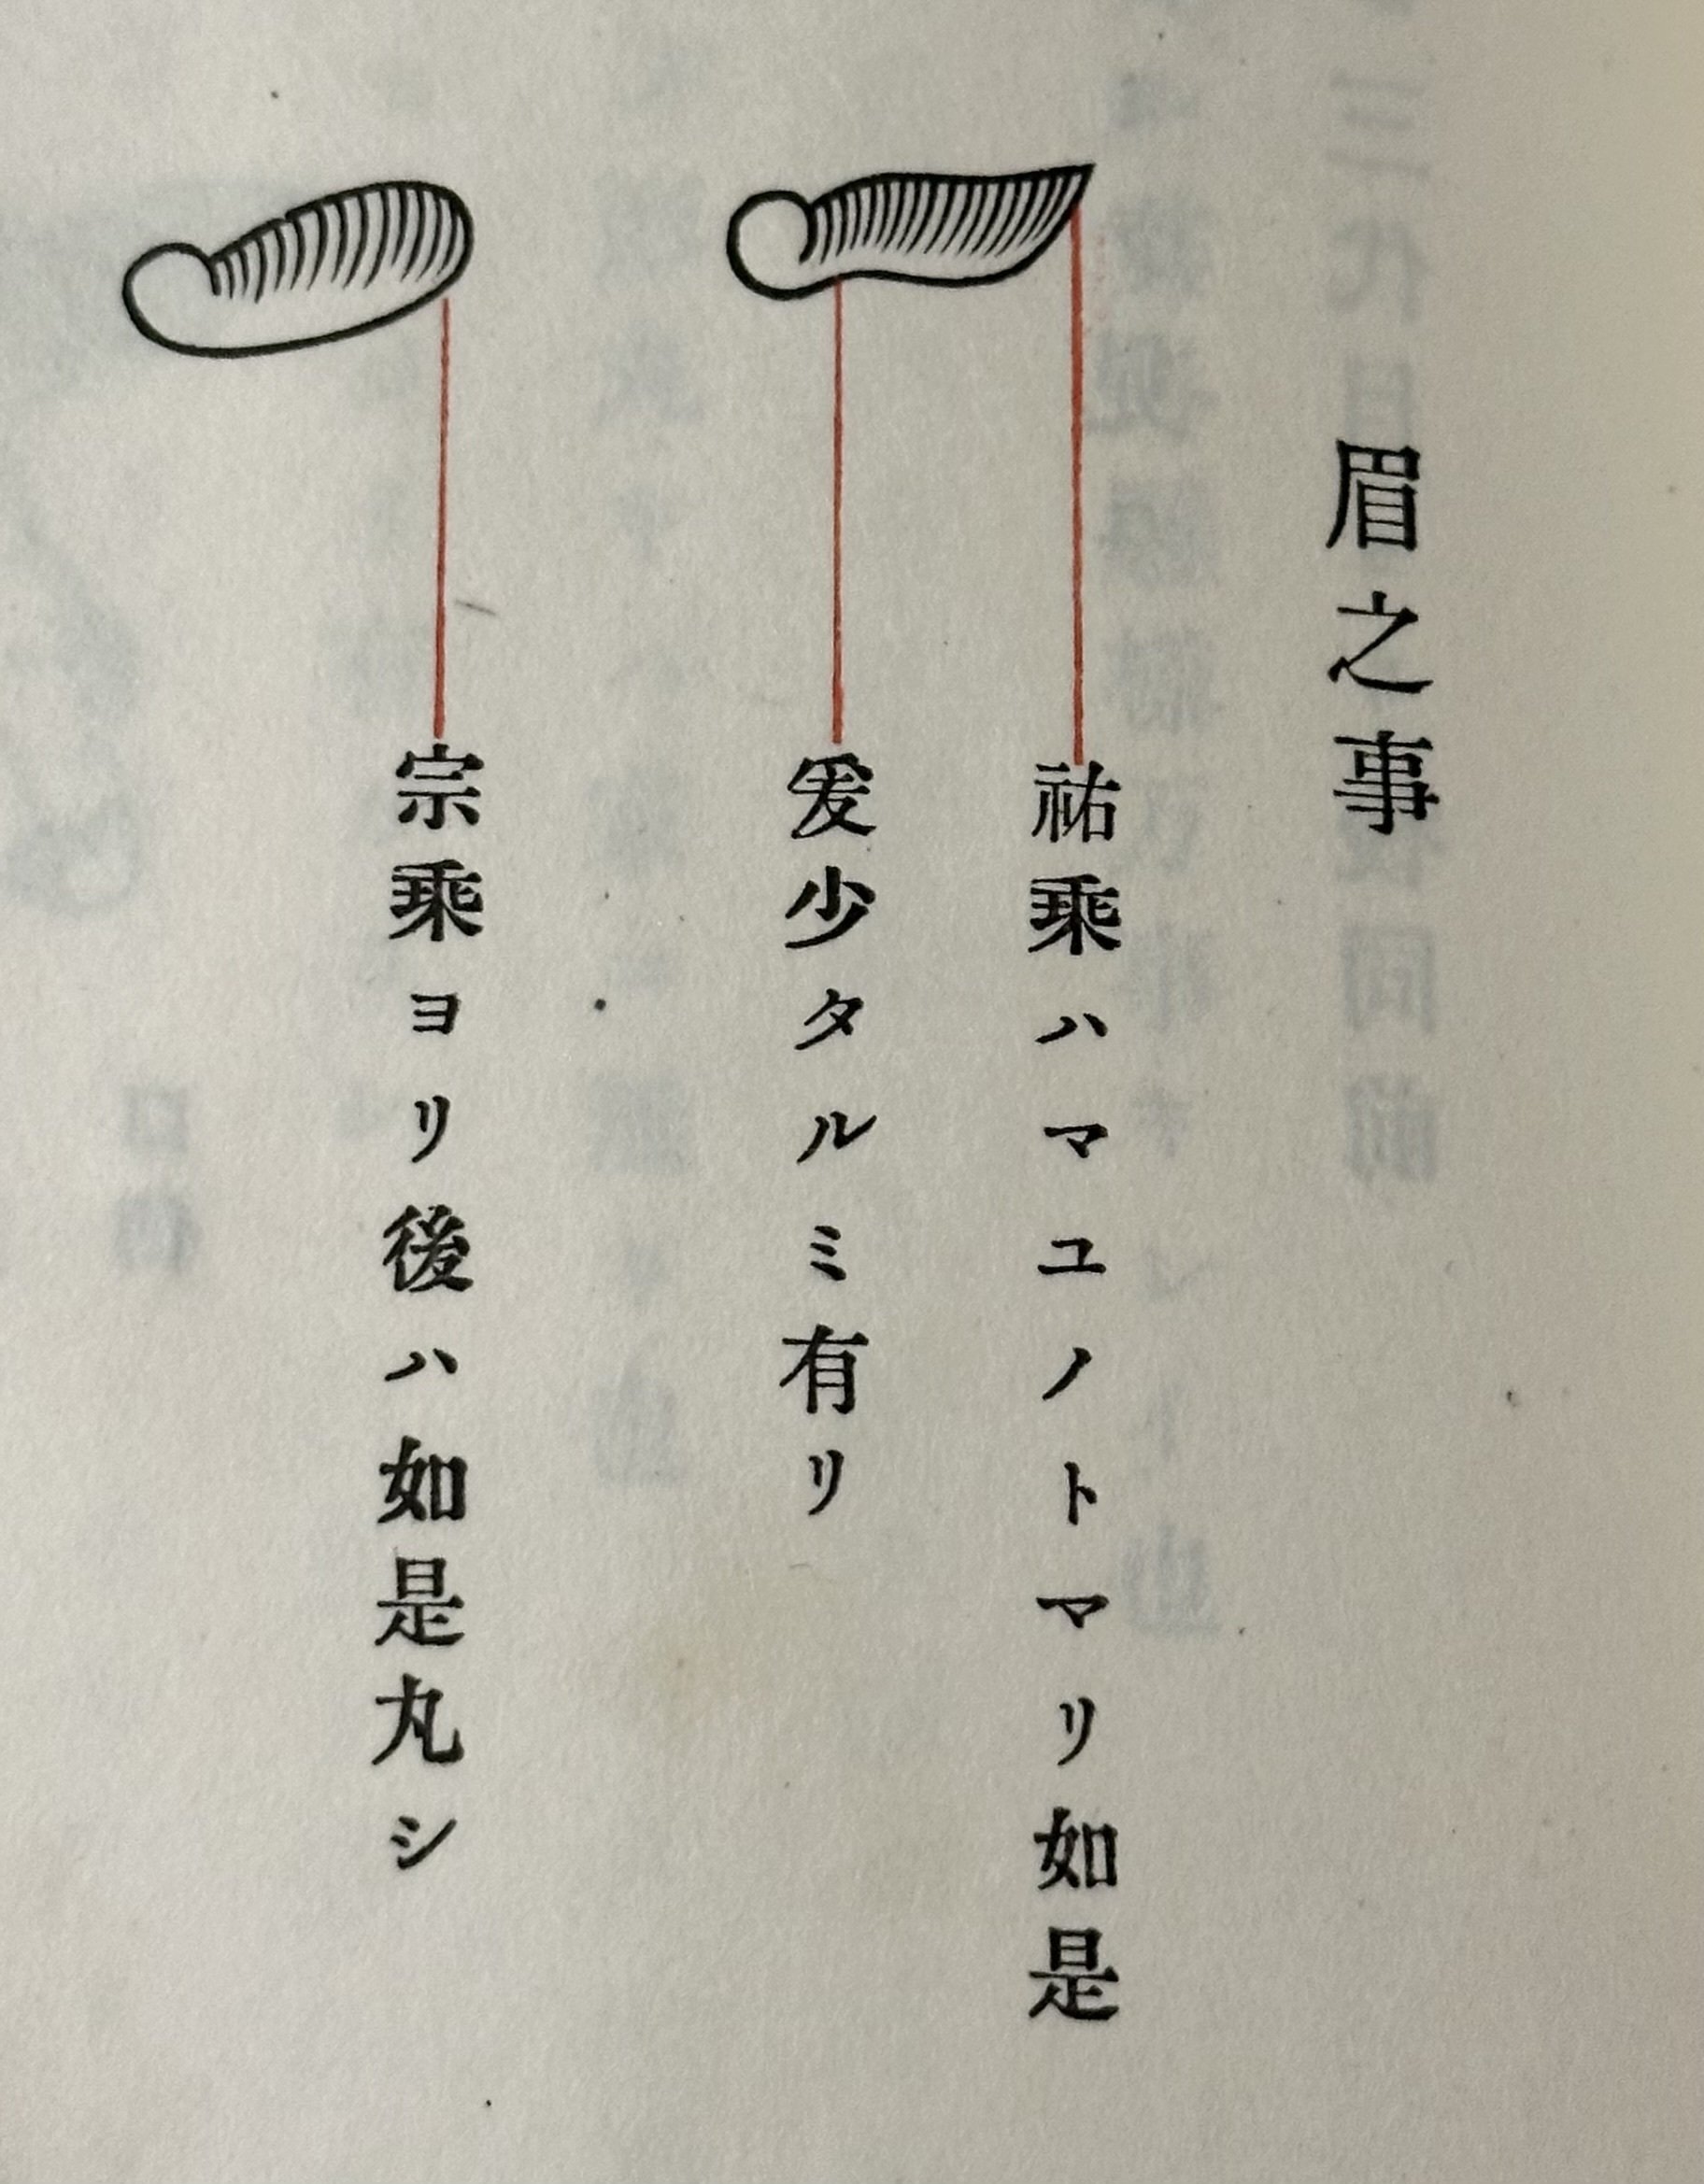 眉之事
祐乗ハマユノトマリ如是
爰少タルミ有リ
宗乗ヨリ後ハ如是丸シ